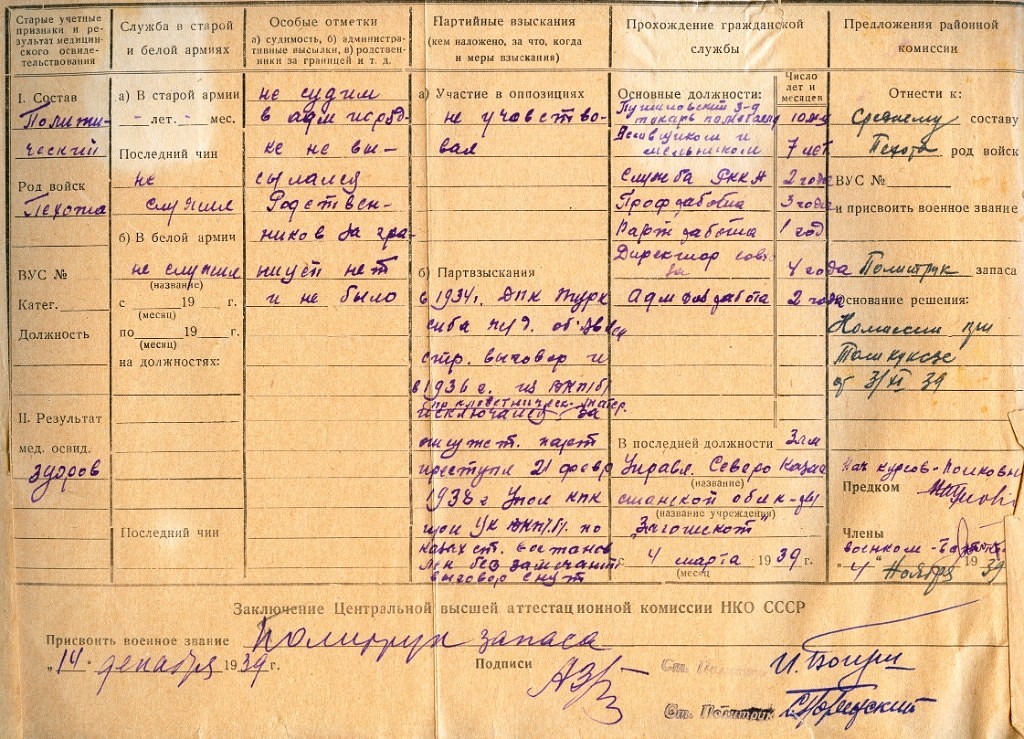 Старые учетные
признаки и ре-
зультат медицин-
ского освиде-
тельствования
I. Состав
Полити-
ческий
Род войск
Пехота
ВУС №
Катег.
Должность
II. Результат
мед. освид.
здоров
Служба в старой
и белой армиях
а) В старой армии
- лет. - мес.
Последний чин
не
служил
б) В белой армии
не служил
(название)
с 19 г.
(месяц)
по 19 г.
(месяц)
на должностях:
Последний чин
Особые отметки
а) судимость, б) администра-
тивные высылки, в) родствен-
ники за границей и т. д.
не судим
в адм
не вы-
сылался
Родствен-
ников за гра-
ницей нет
и не было
Партийные взыскания
(кем наложено, за что, когда
и меры взыскания)
а) Участие в оппозициях
не участво-
вал
б) Партвзыскания
в 1934г. ДПК Турк
сиба
стр. выговор и
в 1936 г. из ВКП/б/
по клеветническ. матер.
исключался за
парт
преступл 21 февр
1938 г Упол КПК
при ЦК ВКП/б/ по
казахст. востанов
лен без замечаний
выговор снят
Прохождение гражданской
службы
Основные должности:
Число
лет и
месяцев
Путиловский з-д
токарь
Весовщиком и
мельником
7 лет
Служба РККА 2 года
Проф работа 3 года
Парт работа 1 год
Директор
4 года
Адм работа 2 года
В последней должности
Управл. Северо Казах
(название)
станской обл к-ры
(название учреждения)
"Заготскот"
с 4 марта 1939 г.
(месяц
Предложения районной
комиссии
Отнести к:
Среднему составу
Пехота род войск
ВУС №
и присвоить военное звание
Политрук запаса
Основание решения:
Комиссии при
от 3/XI 39
Нач курсов-Полковн
Предком
Члены
военком -
"4" Ноября 1939
Заключение Центральной высшей аттестационной комиссии НКО СССР
Присвоить военное звание Политрук запаса
„14" декабря 1939 г.
Подписи
Ст. Политрук